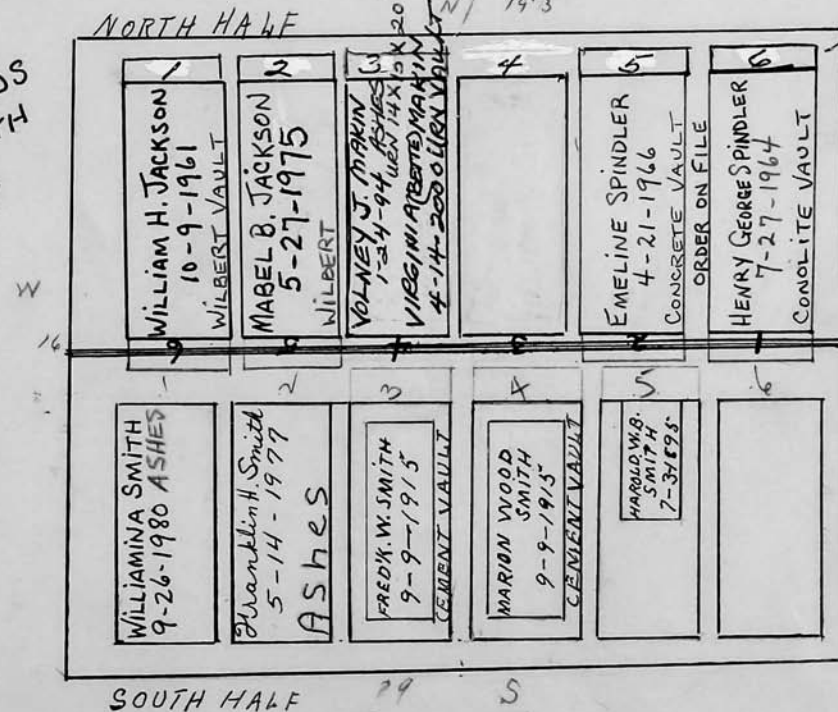 NORTH HALF
N
W
16
1
WILLIAM H. JACKSON
10-9-1961
WILBERT VAULT
2
MABEL B. JACKSON
5-27-1975
WILBERT
3
VOLNEY J. MAKIN
1-24-94 ASHES
VIRGINIA (BEATTE) MAKIN
4-14-2000 URN VAULT
4
5
EMELINE SPINDLER
4-21-1966
CONCRETE VAULT
ORDER ON FILE
6
HENRY GEORGE SPINDLER
7-27-1964
CONOLITE VAULT
1
WILLIAMINA SMITH
9-26-1980 ASHES
2
Franklin H. Smith
5-14-1977
Ashes
3
FRED'K. W. SMITH
9-9-1915
CEMENT VAULT
4
MARION WOOD
SMITH
9-9-1915
CEMENT VAULT
5
HAROLD W.B.
SMITH
6
SOUTH HALF
S